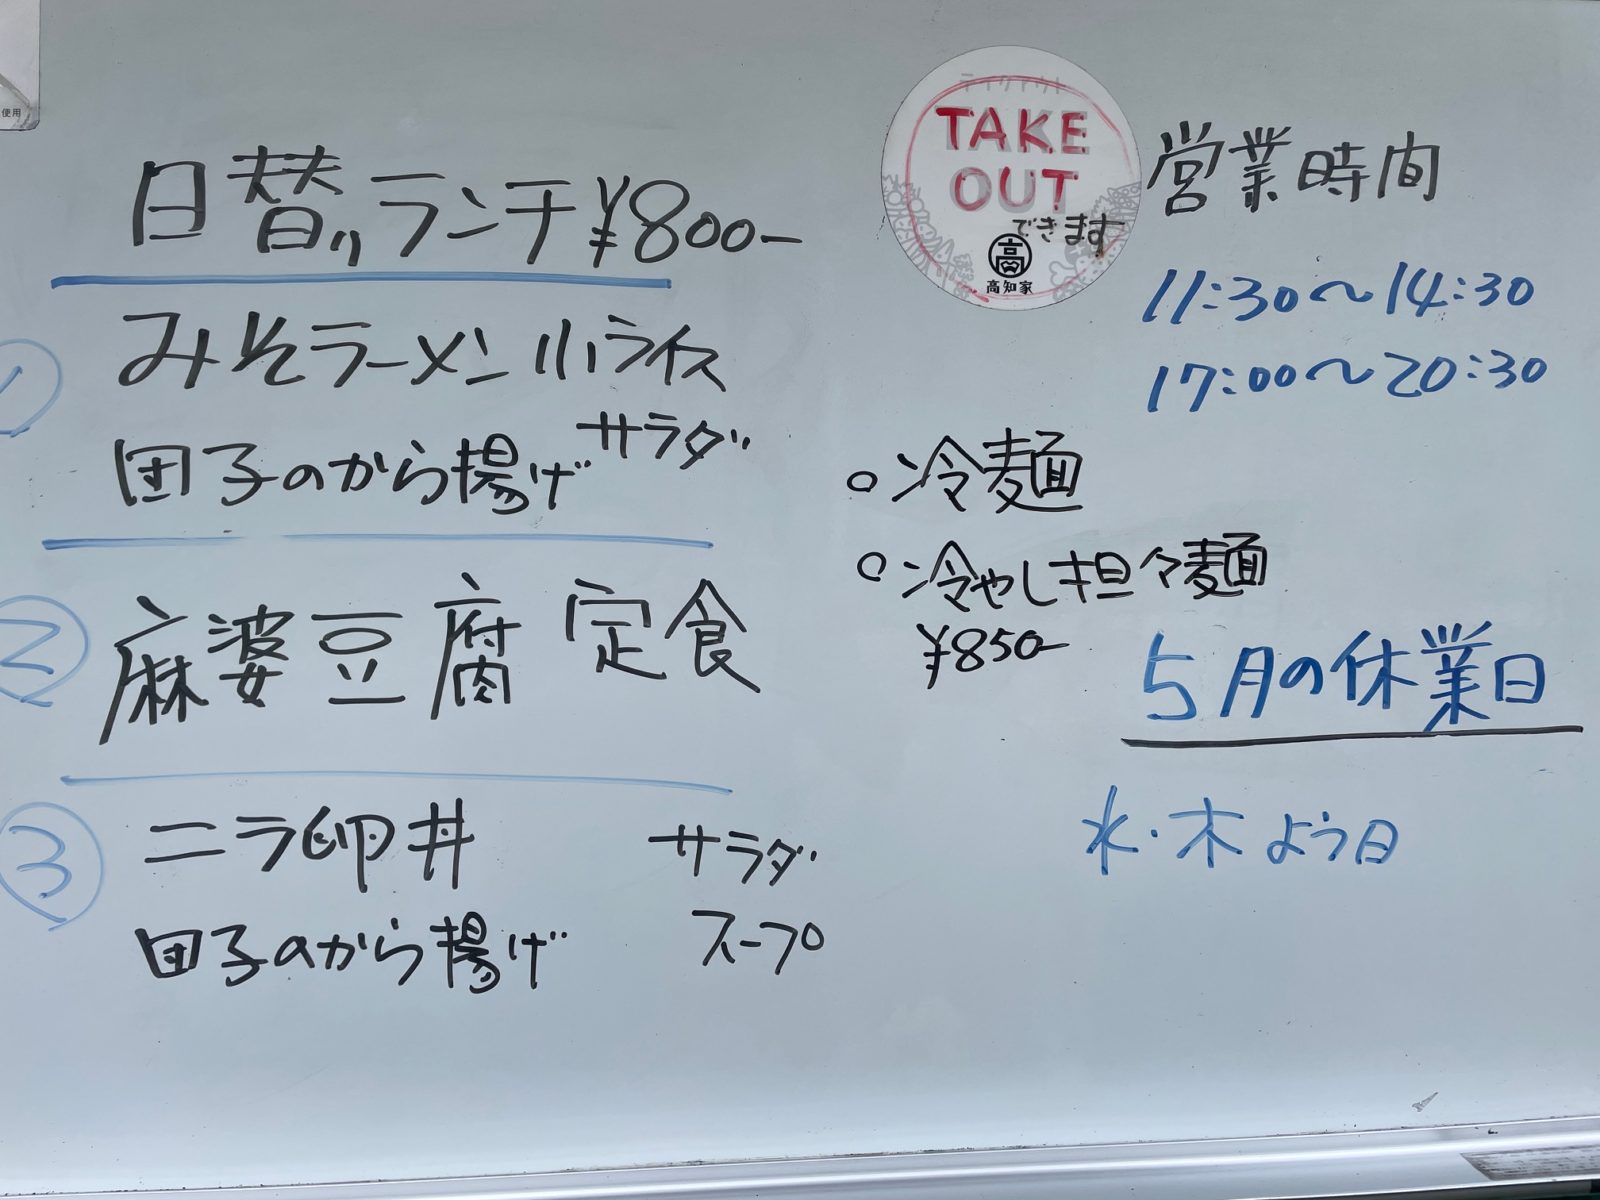 使用
日替りランチ ¥800-
① みそラーメン 小ライス
団子のから揚げ サラダ
② 麻婆豆腐 定食
③ ニラ卵丼 サラダ
団子のから揚げ スープ
テイクアウト
TAKE
OUT
できます
高
高知家
営業時間
11:30〜14:30
17:00〜20:30
○冷麺
○冷やし担々麺
¥850-
5月の休業日
水・木よう日